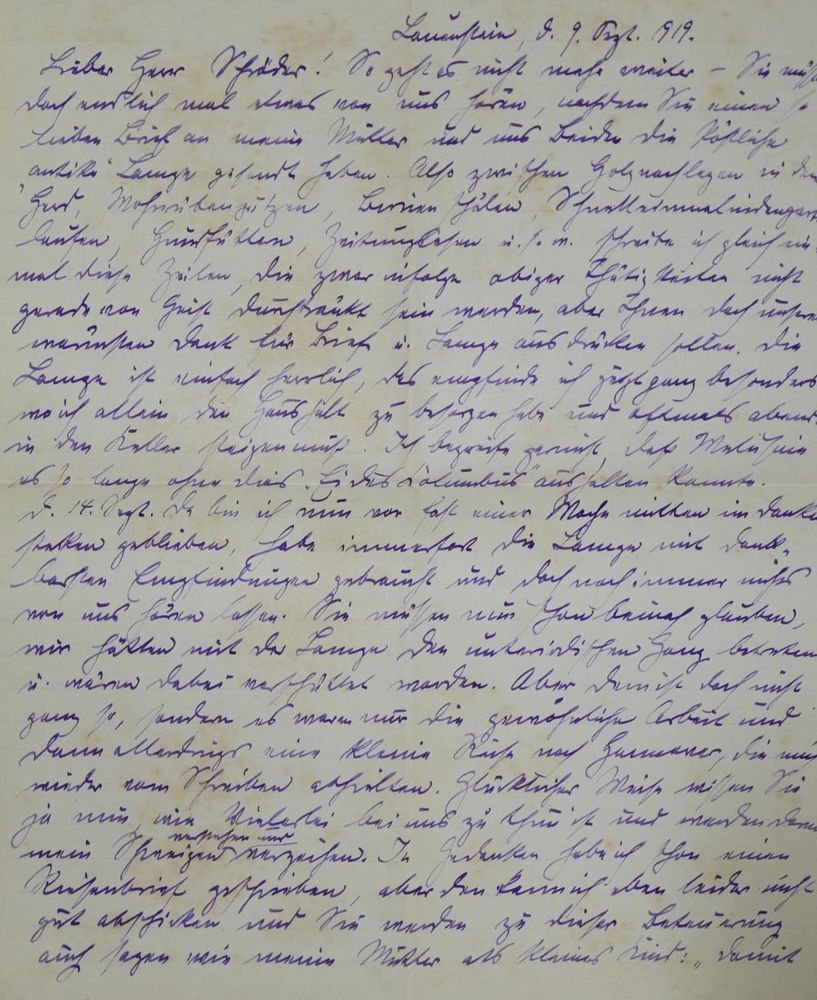 Lauenstein, d. 9. Sept. 1919.
Lieber Herr Schröder! So geht es nicht mehr weiter – Sie müss
doch endlich mal etwas von uns hören, nachdem Sie einen so
lieben Brief an meine Mutter und uns beiden die köstliche
"antike" Lampe gesandt haben. Also zwischen Holznachlegen in den
Herd, Mohrrübenputzen, Birnen schälen, Schnelleinmalindengarten
laufen, Hundfüttern, Zeitunglesen u. s. w. schreibe ich gleich ein-
mal diese Zeilen, die zwar infolge obiger Thätigkeiten nicht
gerade von Geist durchtränkt sein werden, aber Ihnen doch unsern
wärmsten Dank für Brief u. Lampe ausdrücken sollen. Die
Lampe ist einfach herrlich, das empfinde ich jetzt ganz besonders
wo ich allein den Haushalt zu besorgen habe und oftmals abends
in den Keller steigen muß. Ich begreife garnicht, daß Melusine
es so lange ohne dies "Ei des Columbus" aushalten konnte.
d. 14. Sept. Da bin ich nun vor fast einer Woche mitten im Danke
stecken geblieben, habe immerfort die Lampe mit dank-
barsten Empfindungen gebraucht und doch noch immer nichts
von uns hören lassen. Sie müssen nun schon beinah glauben,
wir hätten mit der Lampe den unterirdischen Gang betreten
u. wären dabei verschüttet worden. Aber dem ist doch nicht
ganz so, sondern es waren nur die gewöhnliche Arbeit und
dann allerdings eine kleine Reise nach Hannover, die mich
wieder vom Schreiben abhielten. Glücklicher Weise wissen Sie
ja nun, wie Vielerlei bei uns zu thun ist und werden darum
mein Schweigen verstehen und verzeihen. In Gedanken habe ich schon einen
Riesenbrief geschrieben, aber den kann ich eben leider nicht
gut abschicken und Sie werden zu dieser Beteuerung
auch sagen wie meine Mutter als kleines Kind: "damit